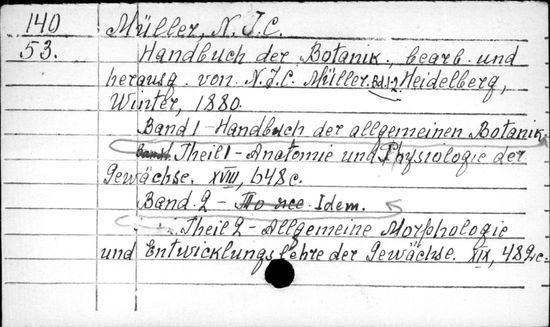 140 Müller, N. J. C.
53. Handbuch der Botanik, bearb. und
herausg. von N. J. C. Müller. Bd. 1-2. Heidelberg,
Winter, 1880.
Band 1 - Handbuch der allgemeinen Botanik.
Band 1. Theil 1 - Anatomie und Physiologie der
Gewächse. XVIII, 648 c.
Band. 2 - То же. Idem.
Theil 2 - Allgemeine Morphologie
und Entwicklungslehre der Gewächse. XIX, 482 c.